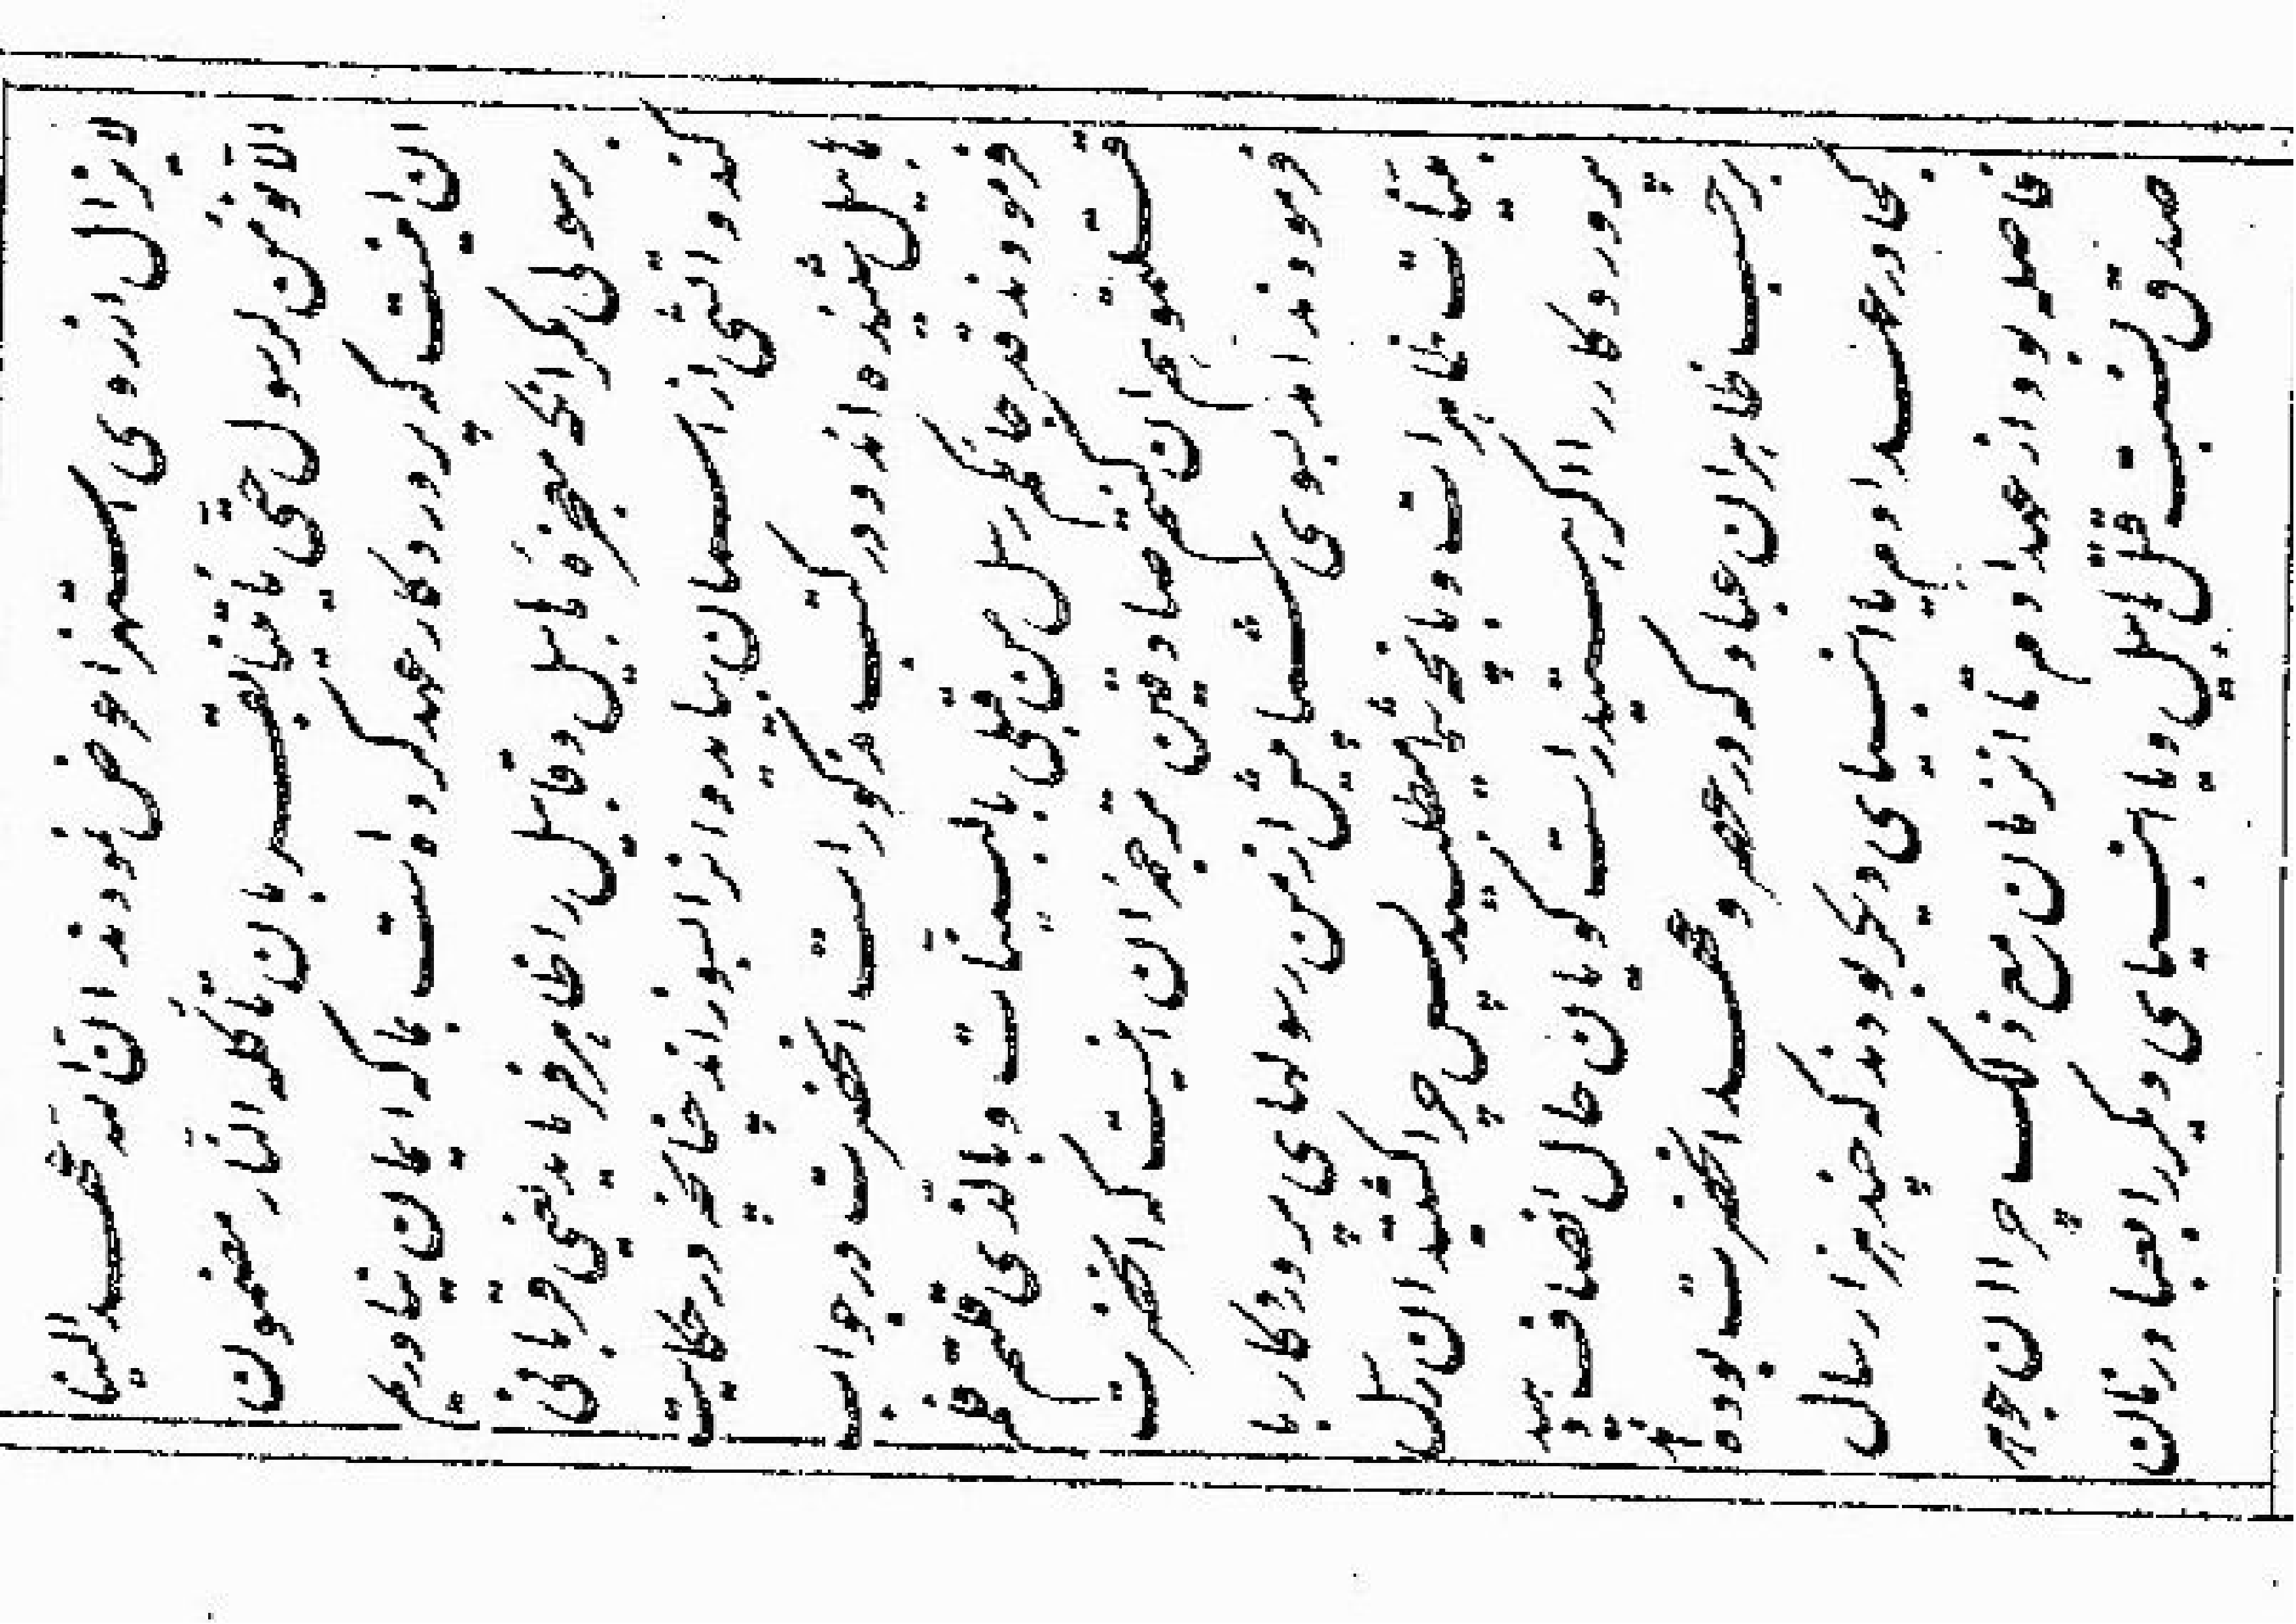 لایزال از روی استهزا عرض نمودند انّ اللّه عهد الینا
الّا نؤمن لرسول حتّی یأتینا بقربان تأکله النّار مضمون
این است که پروردگار عهد کرده است بما که ایمان نیاوریم
برسولی مگر انکه معجزه هابیل و قابیل را ظاهر فرماید یعنی قربانی
کند و اتشی از اسمان بیاید و او را بسوزاند چنانچه در حکایت
هابیل شنیده اند و در کتب مذکور است انحضرت در جواب
فرمودند قد جائکم رسل من قبلی بالبیّنات و بالّذی قلتم فلم
قتلتموهم ان کنتم صادقین ترجمه ان اینست که انحضرت
فرمودند امد بسوی شما پیش از من رسولهای پروردگار با
بیّنات ظاهرات و بانچه شما میطلبید پس چرا کشتید ان رسل
پروردگار را اگر هستید راست گویان حال انصاف دهید
برحسب ظاهر ان عباد که در عصر و عهد انحضرت بوده اند
کجا در عهد ادم یا انبیای دیگر بودند که چند هزار سال
فاصله بود از عهد ادم تا ان زمان مع ذلک چرا ان جوهر
صدق نسبت قتل هابیل و یا انبیای دیگر را بعباد زمان